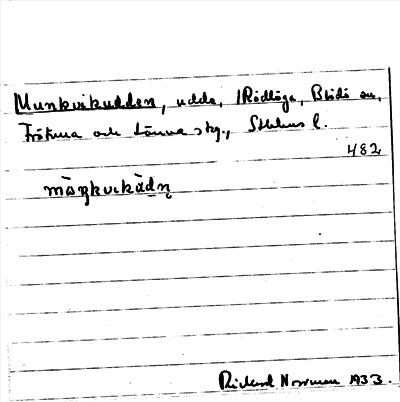 Munkvikudden, udde, Rödlöga, Blidö sn,
Frötuna och Länna skg., Sthlms l.
482
Rickard Norrman 1933.